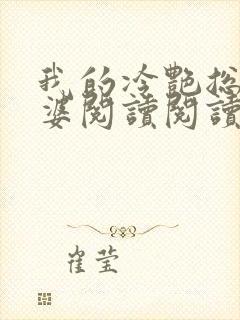 我的冷艷總
婆閱讀閱讀
崔莹